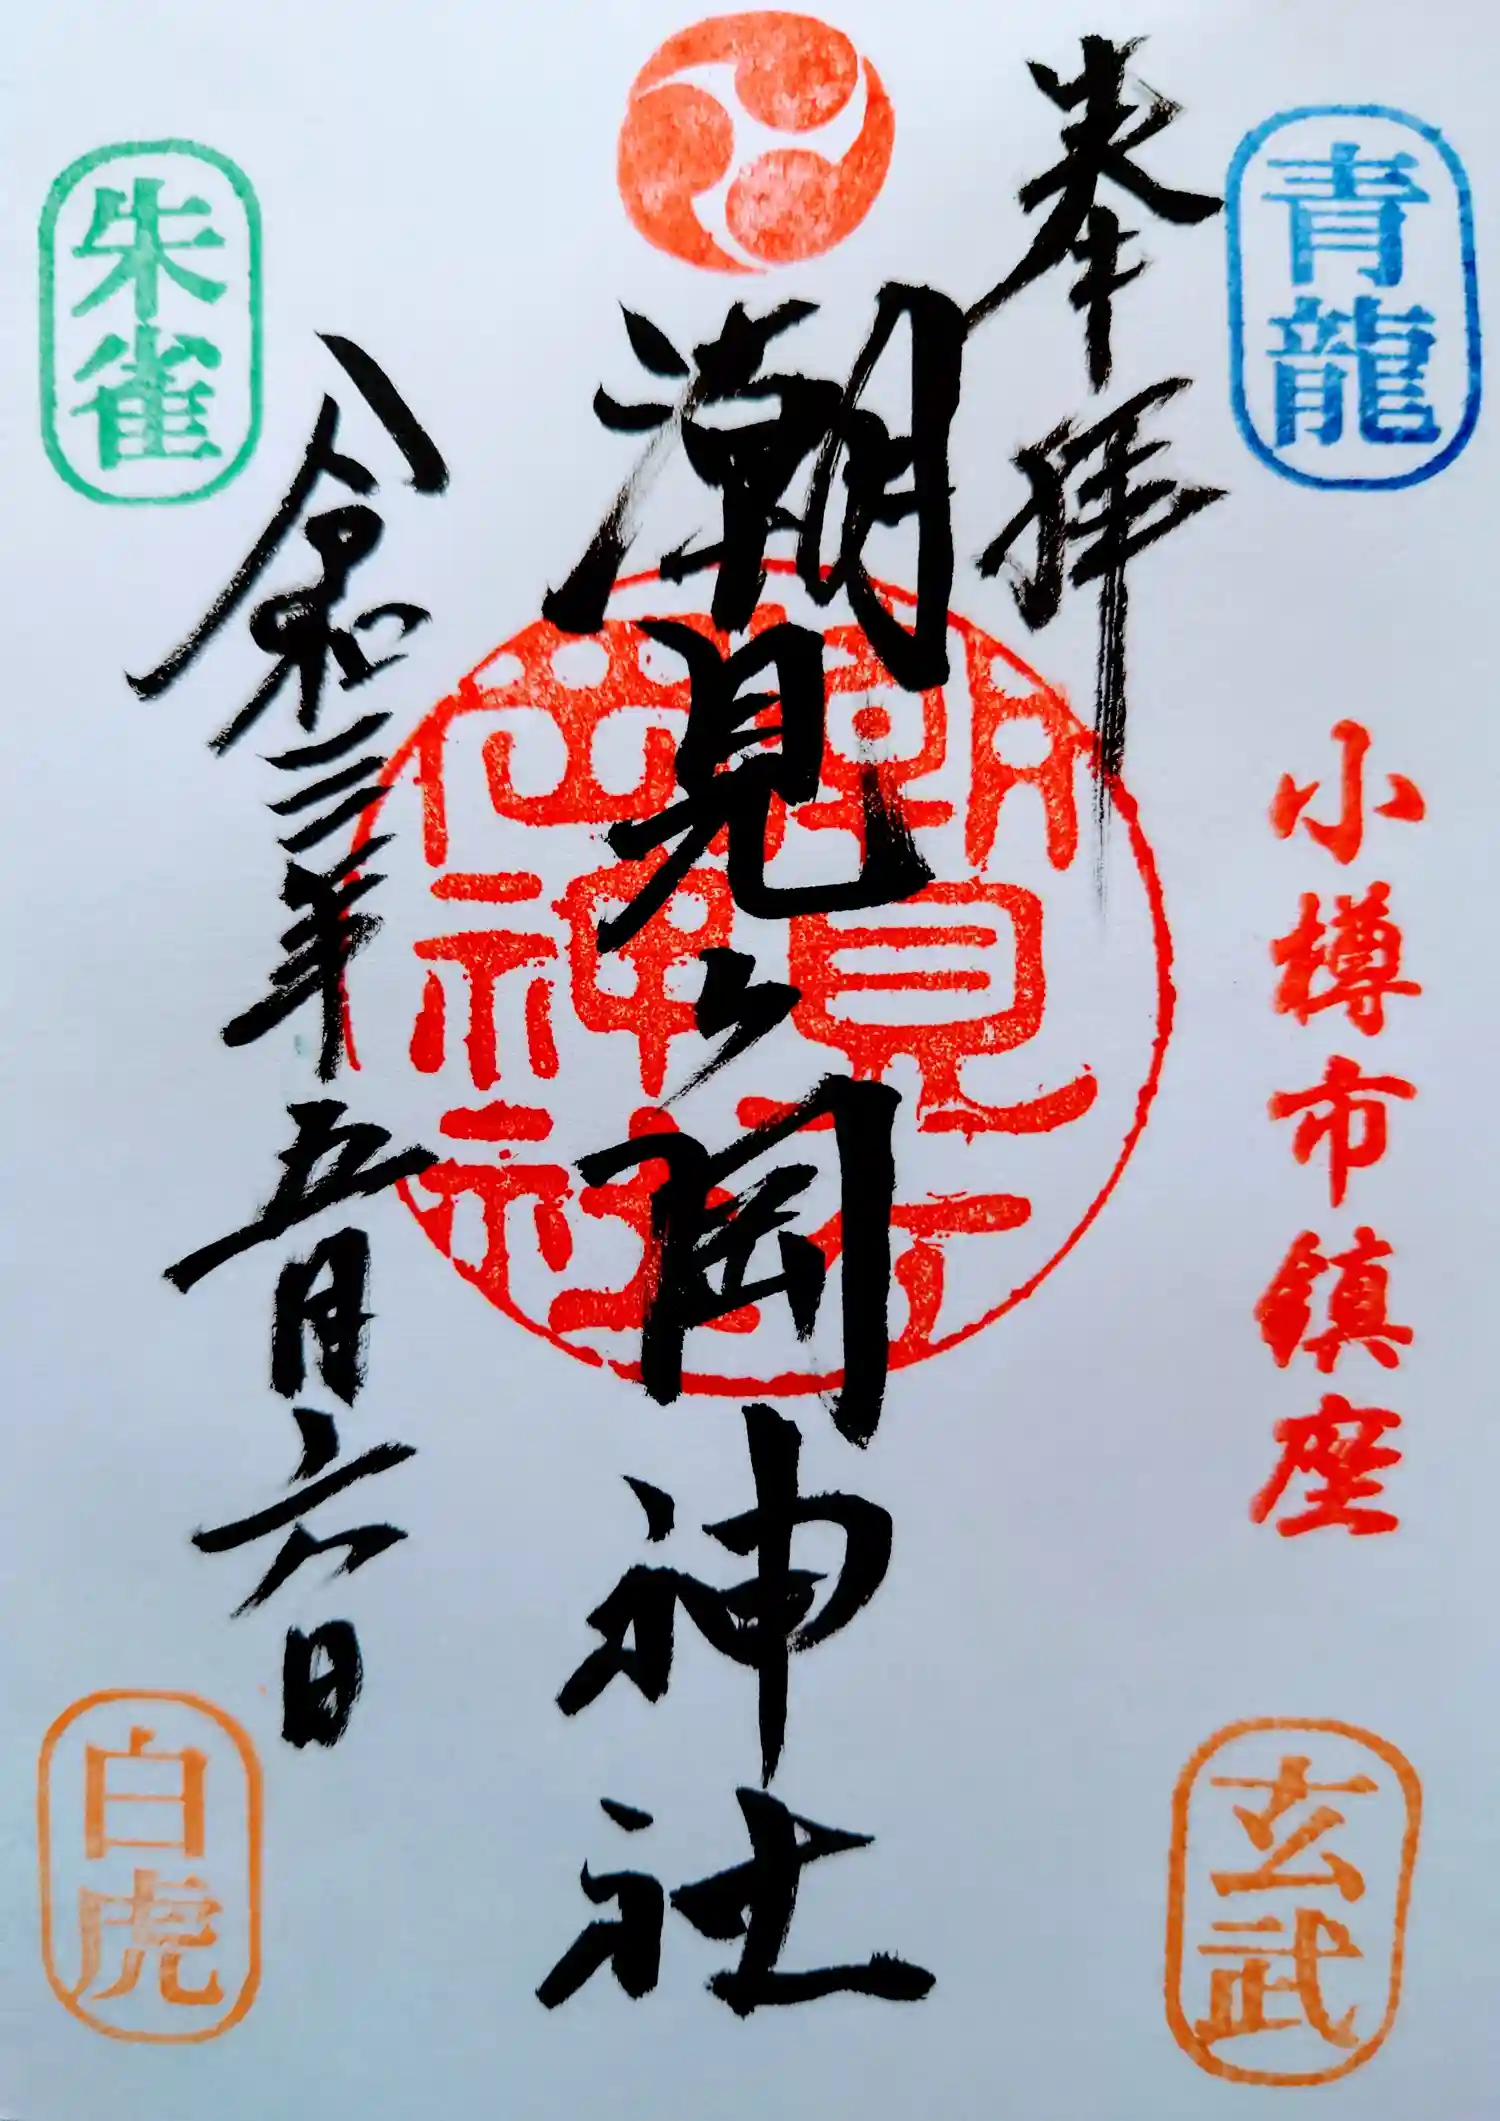 青龍
奉拝
小樽市鎮座
潮見ヶ岡神社
潮見ケ
岡神社
令和三年五月六日
朱雀
玄武
白虎